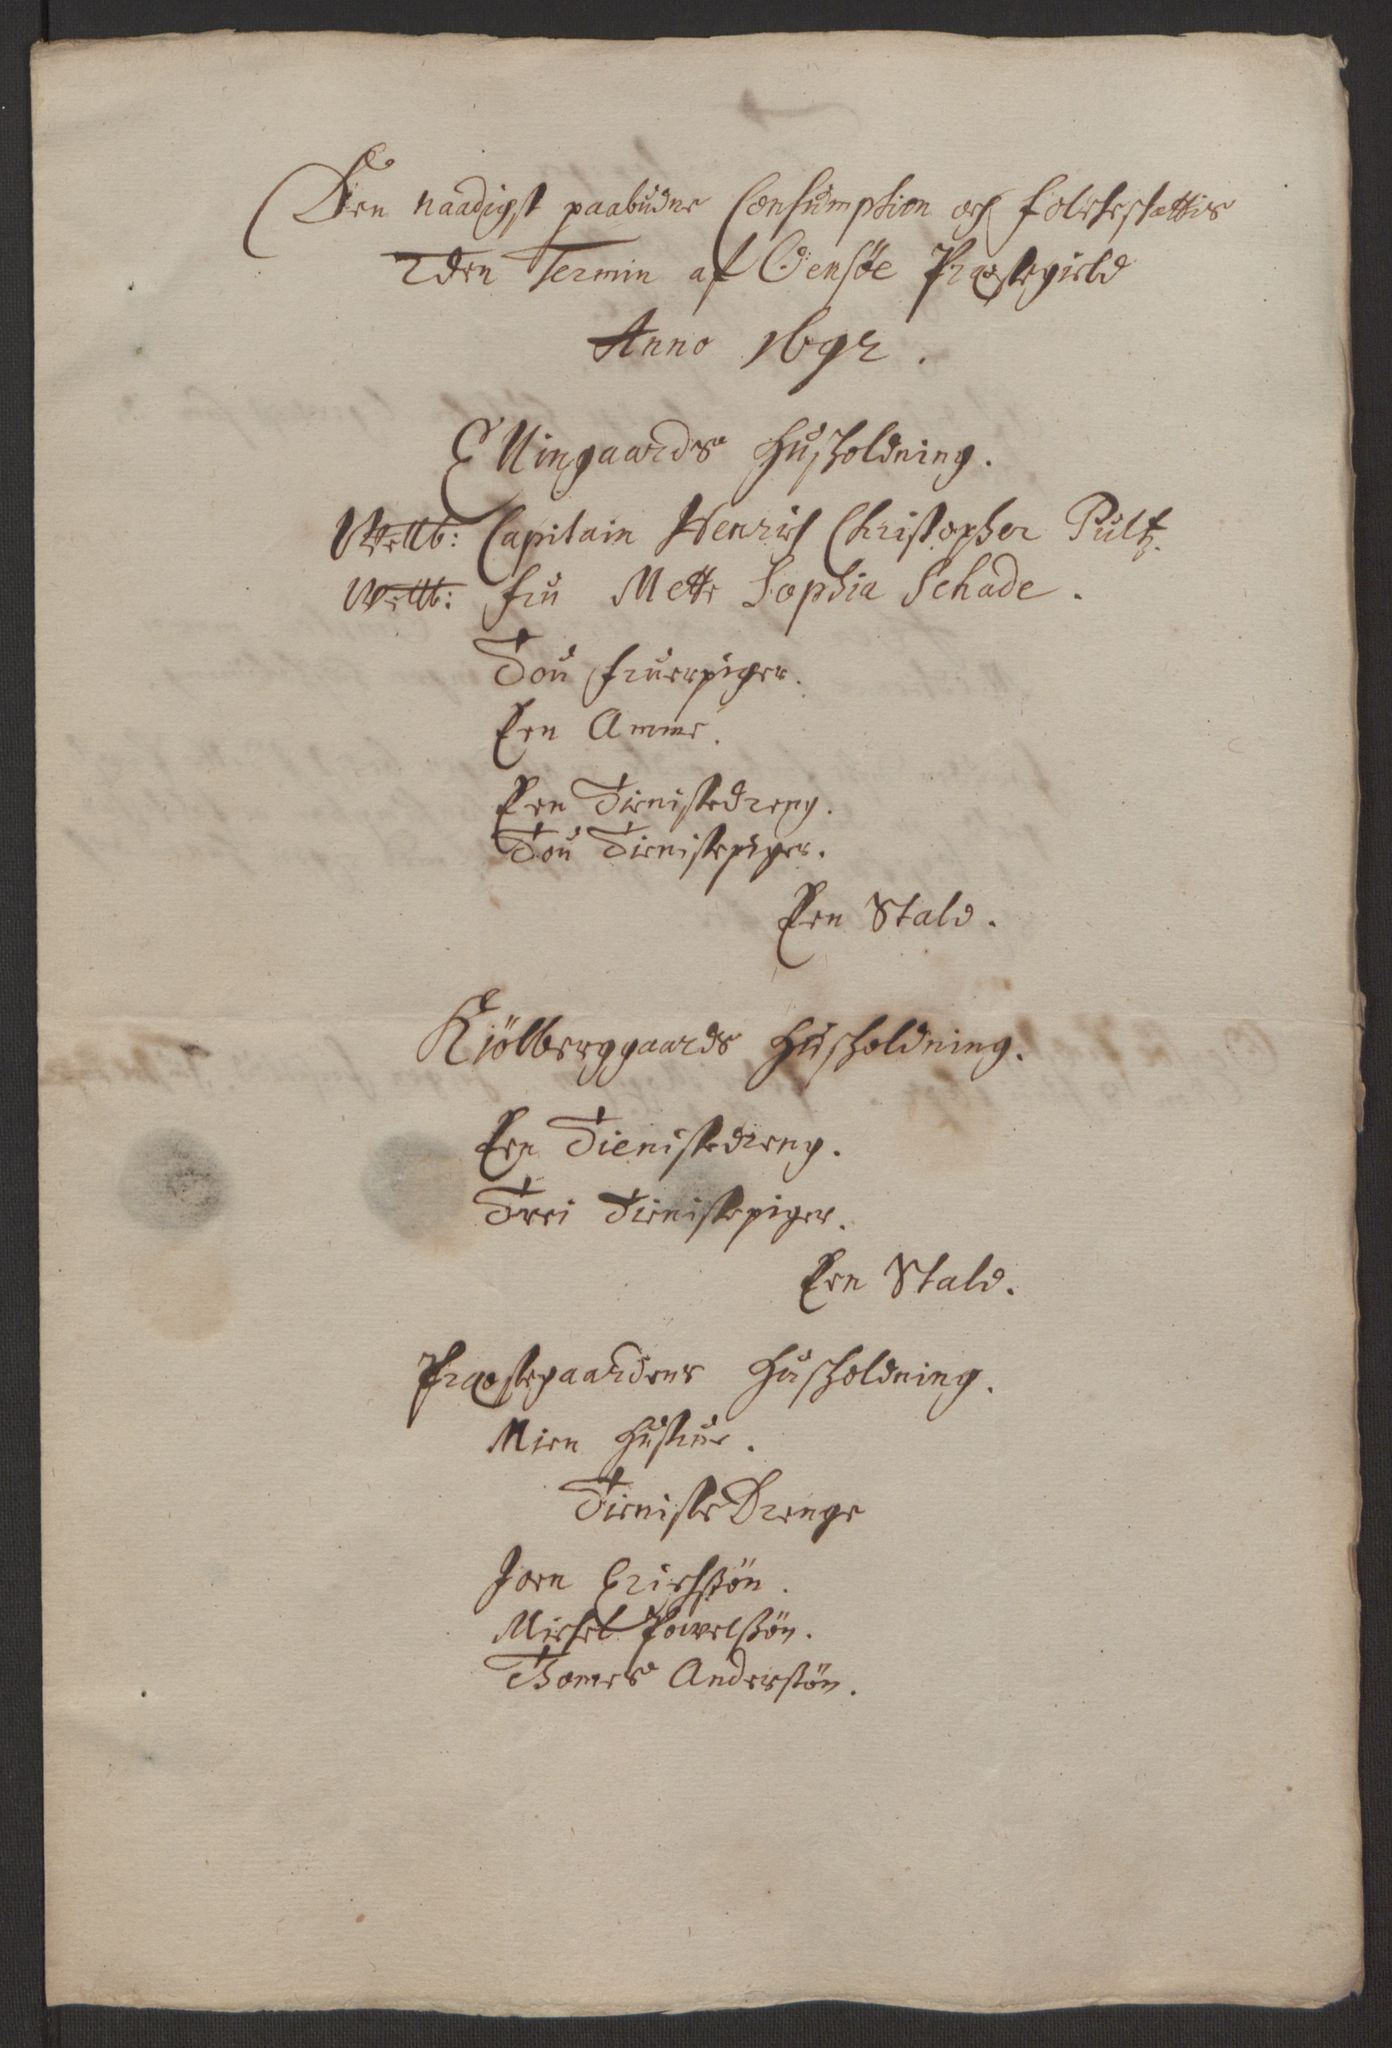 Den naadigst paabudne Consumption och folcheskattis
2den Termin af Odensøe Præstegield
Anno 1692.
Ellingaards Huusholdning.
Wellb: Capitain Henrich Christopher Pultz.
Wellb: fru Mette Sophia Schade.
Tou fruerpiger.
Een Amme.
Een Tienistedreng.
Tou Tienistepiger.
Een Stald.
Kiölberggaards Huusholdning.
Een Tienistedreng.
Trei Tienistepiger.
Een Stald.
Præstegaardens Huusholdning.
Mien Hustrue.
Tieniste Drenge
Joen Erichsøn.
Michel Powelsøn.
Thomes Andersøn.